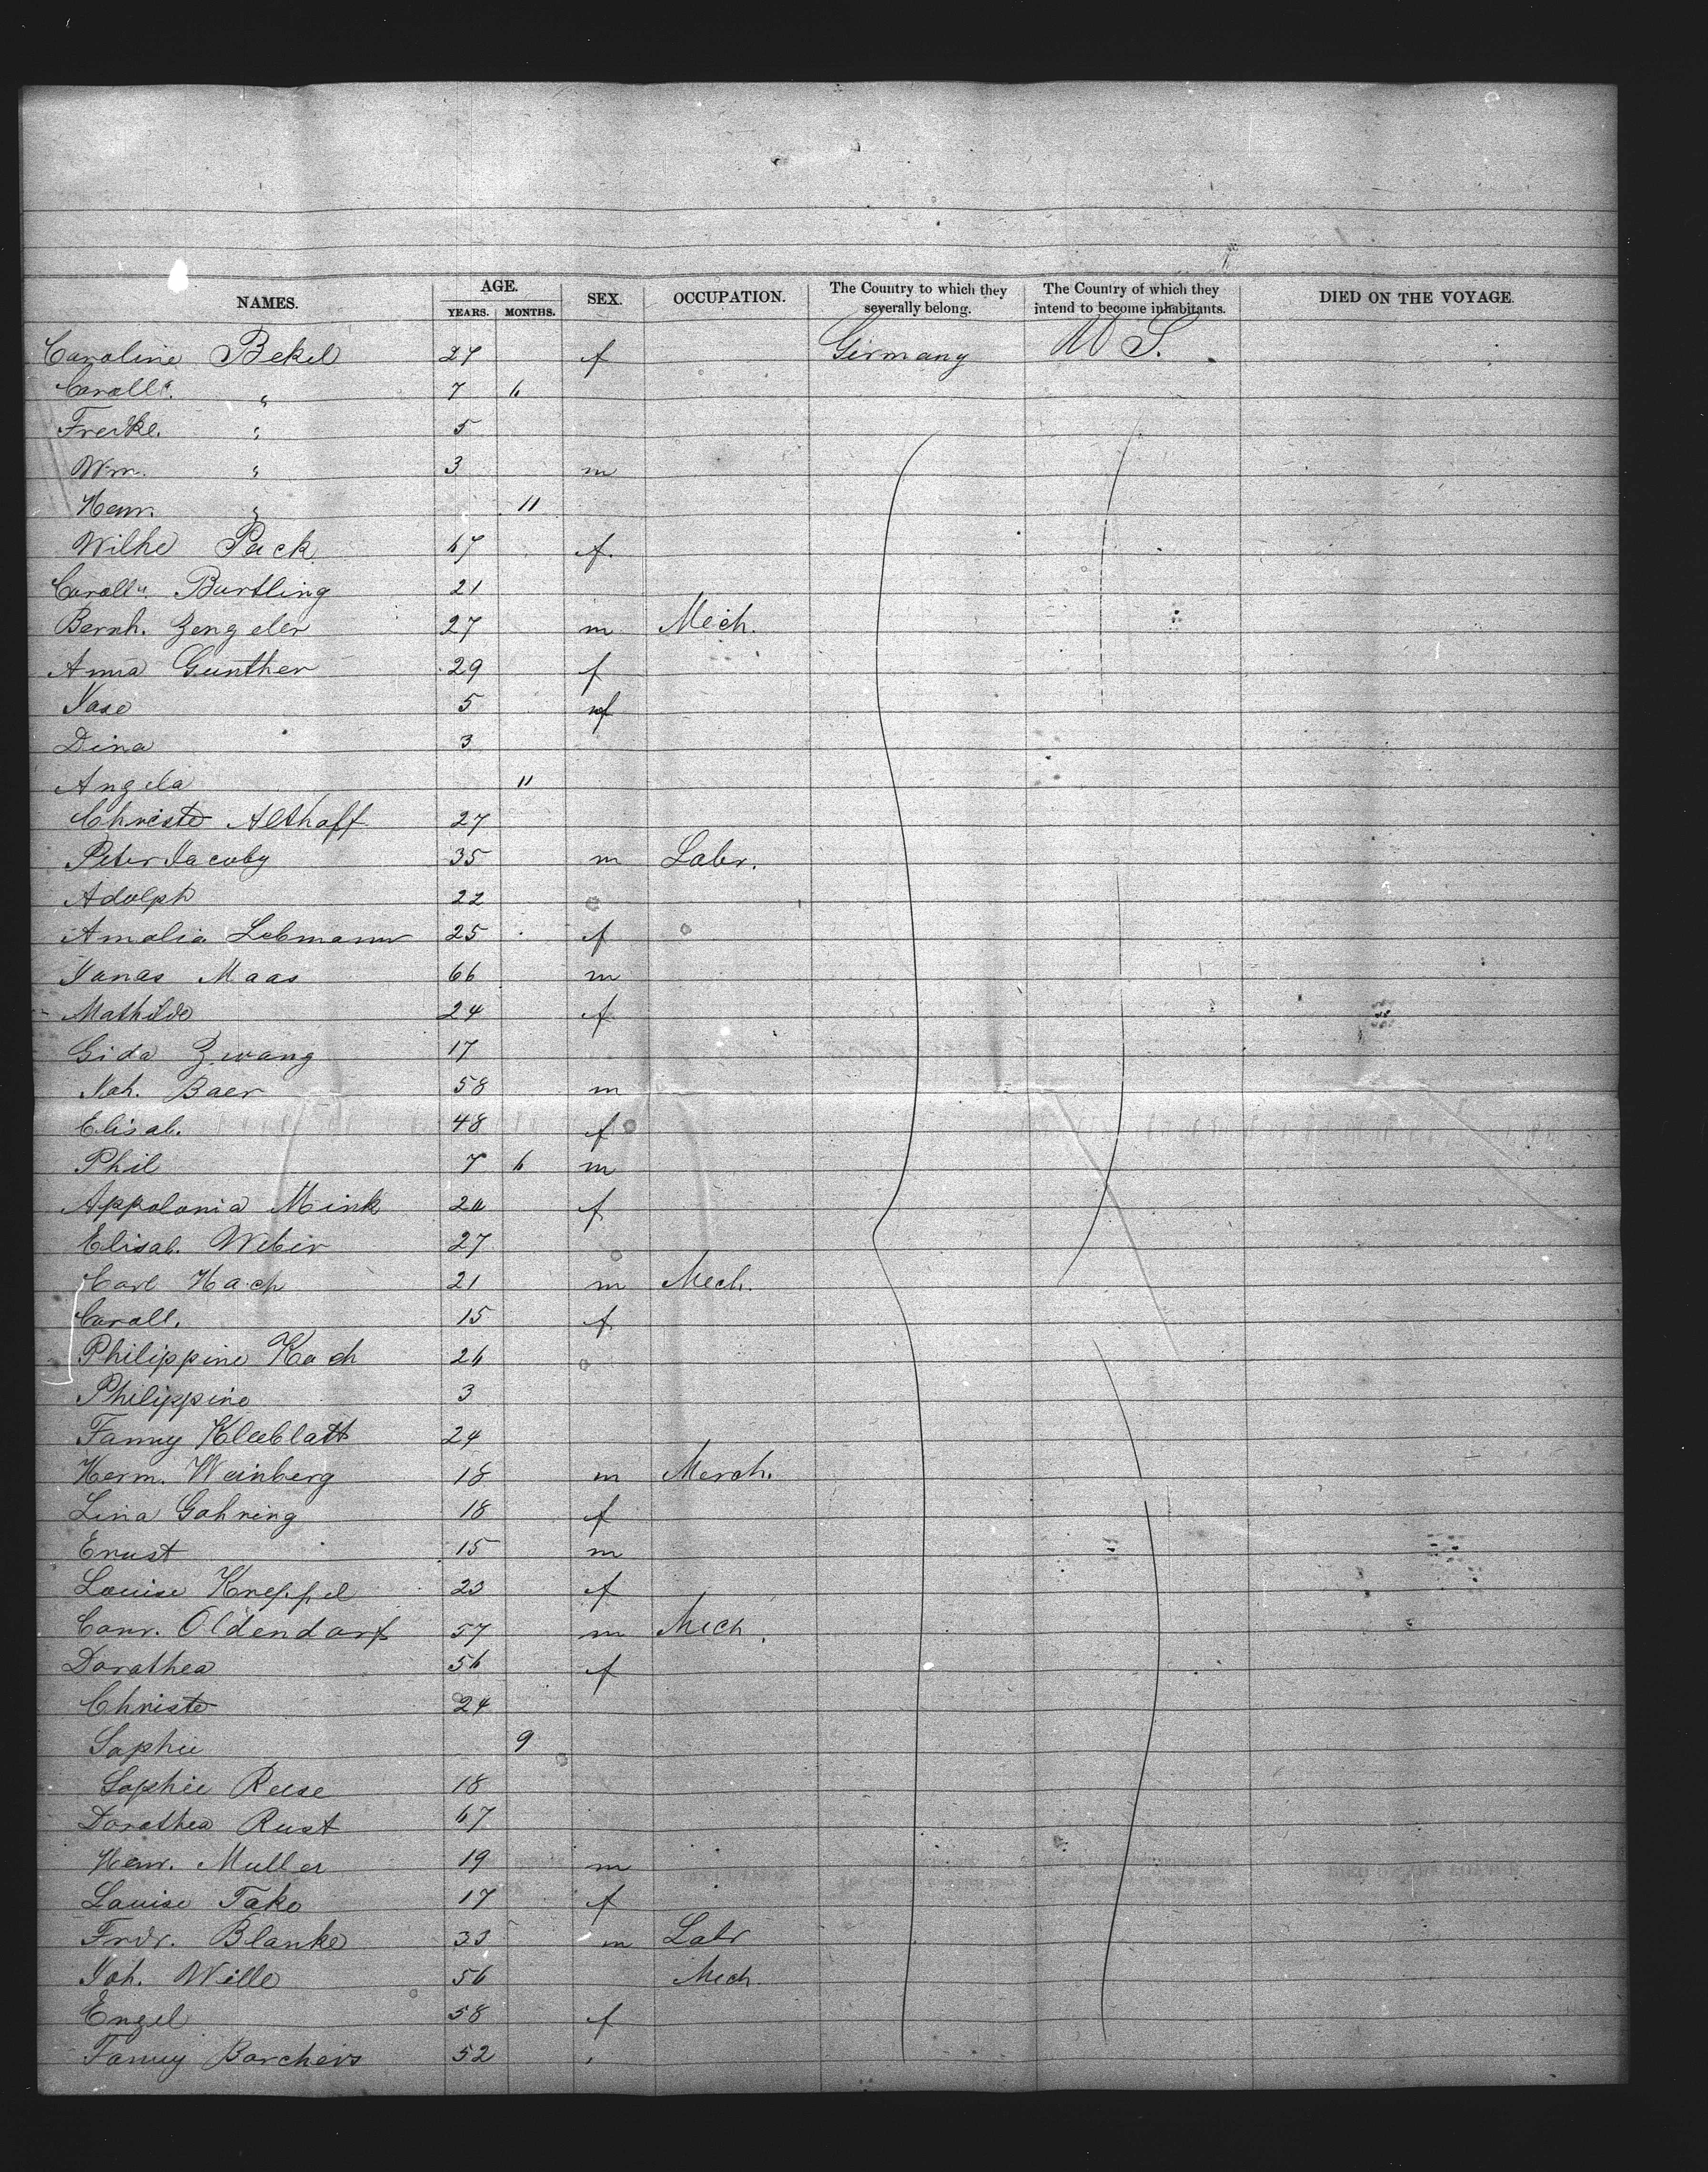 NAMES. AGE. SEX. OCCUPATION. The Country to which they severally belong. The Country of which they intend to become inhabitants. DIED ON THE VOYAGE.
YEARS. MONTHS.
Caroline Bekel 27 f Germany U S.
Caroll. " 7 6
Freike. " 5
Wm. " 3 m
Henr. " 11
Wilhe Peck 67 f.
Caroll. Bartling 21
Bernh. Zengeler 27 m Mech.
Anna Gunther 29 f
Jase 5 f
Dina 3
Angela 11
Christe Althoff 27
Peter Jacoby 35 m Labr.
Adolph 22
Amalia Lebmann 25 f
Jonas Maas 66 m
Mathilde 24 f
Gida Zwang 17
Joh. Baer 58 m
Elisab. 48 f
Phil 7 6 m
Appolonia Mink 20 f
Elisab. Weber 27
Carl Hach 21 m Mech.
Caroll. 15 f
Philippine Koch 26
Philippine 3
Fanny Kleeblatt 24
Herm. Weinberg 18 m Merch.
Lina Gohring 18 f
Ernst 15 m
Louise Kneppel 23 f
Conr. Oldendorf 57 m Mech.
Dorathea 56 f
Christe 24
Sophie 9
Sophie Reese 18
Dorathea Rust 67
Henr. Muller 19 m
Louise Take 17 f
Frdr. Blanke 33 m Labr
Joh. Wille 56 Mech.
Engel 58 f
Fanny Borchers 52 "